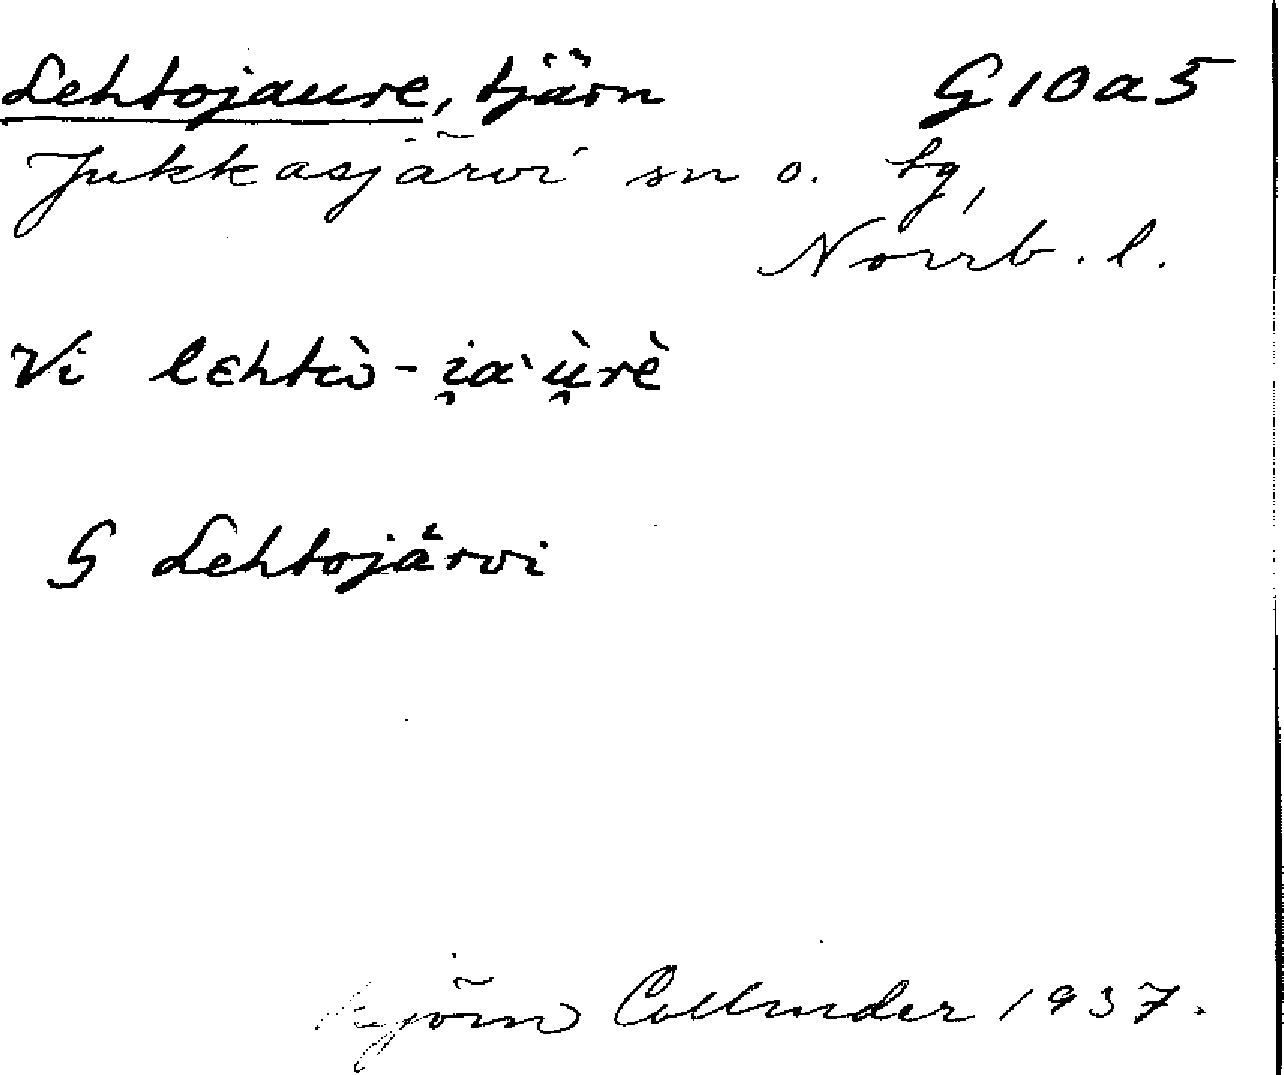 Lehtojaure, tjärn G10a5
Jukkasjärvi sn o. tg,
Norrb. l.
Vi lɛhtɑ̀ - i̯a`ù̯rè
G Lehtojärvi
Björn Collinder 1937.